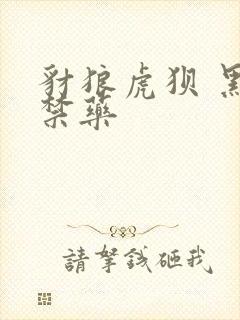 豺狼虎狈 黑
禁药
請拏錢砸我